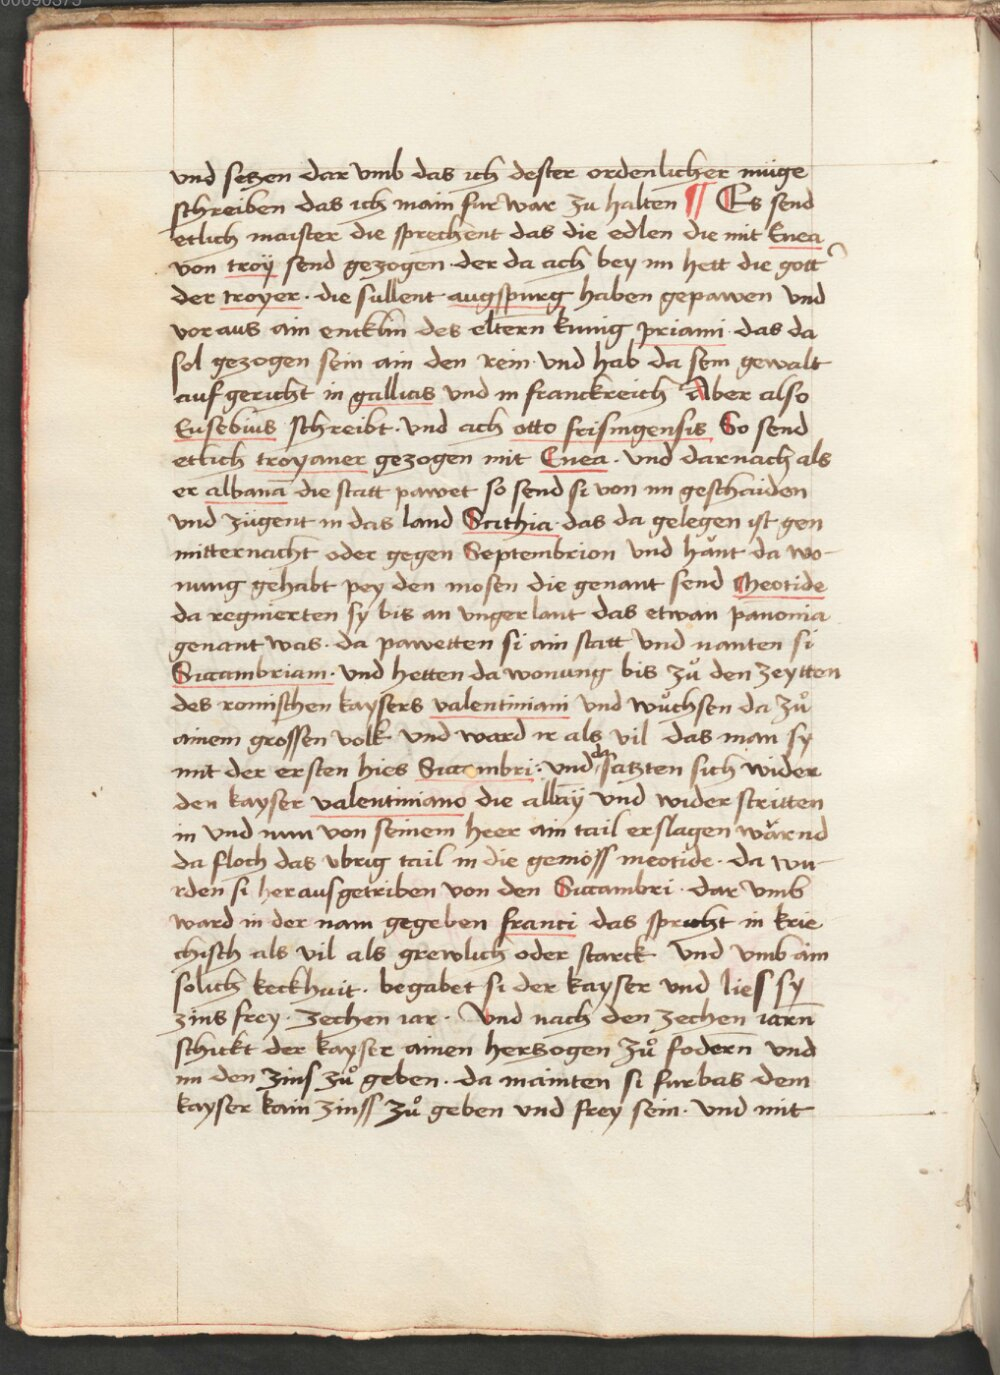 00090375
vnd setzen dar vmb das ich dester ordenlicher müge
schreiben das ich main fur war zu halten ¶ Es send
etlich maister die sprechent das die edlen die mit Enea
von troÿ send gezogen · der da ach bey im hett die gott
der troyer · die sullent augspurg haben gepawen vnd
vor aus ain encklin des eltern kunig priami · das da
sol gezogen sein ain den rein · vnd hab da sein gewalt
auf gericht in gallias vnd in franckreich Aber also
Eusebius schreibt · vnd ach otto frisingensis So send
etlich troyaner gezogen mit Enea · vnd darnach als
er albana die statt pawet so send si von im geschaiden
vnd zügent in das land Scithia · das da gelegen ist gen
mitternacht oder gegen Septembrion vnd hänt da wo-
nung gehabt pey den mosen die genant send Meotide
da regnierten sy bis an vnger lant das etwan panonia
genant was · da pawetten si ain statt vnd nanten si
Siccambriam · vnd hetten da wonung bis zů den zeytten
des romischen kaysers valentiniani vnd wůchsen da zů
ainem grossen volk · vnd ward ir als vil das man sy
mit der ersten hies Siccambri : vnd da satzten sich wider
den kayser valentiniano die allaÿ vnd wider stritten
in vnd nun von seinem heer ain tail erslagen wärnd
da floch das vbrig tail in die gemöss meotide · da wu-
rden si her ausgetriben von den Siccambri · dar vmb
ward in der nam gegeben franci das spricht in krie
chisch als vil als grewlich oder starck Vnd vmb ain
solich keckhait · begabet si der kayser vnd lies sy
zins frey · zechen iar · Vnd nach den zechen iarn
schickt der kayser ainen herzogen zů fodern vnd
im den zins zů geben · da mainten si furbas dem
kayser kain zinss zů geben vnd frey sein · vnd mit